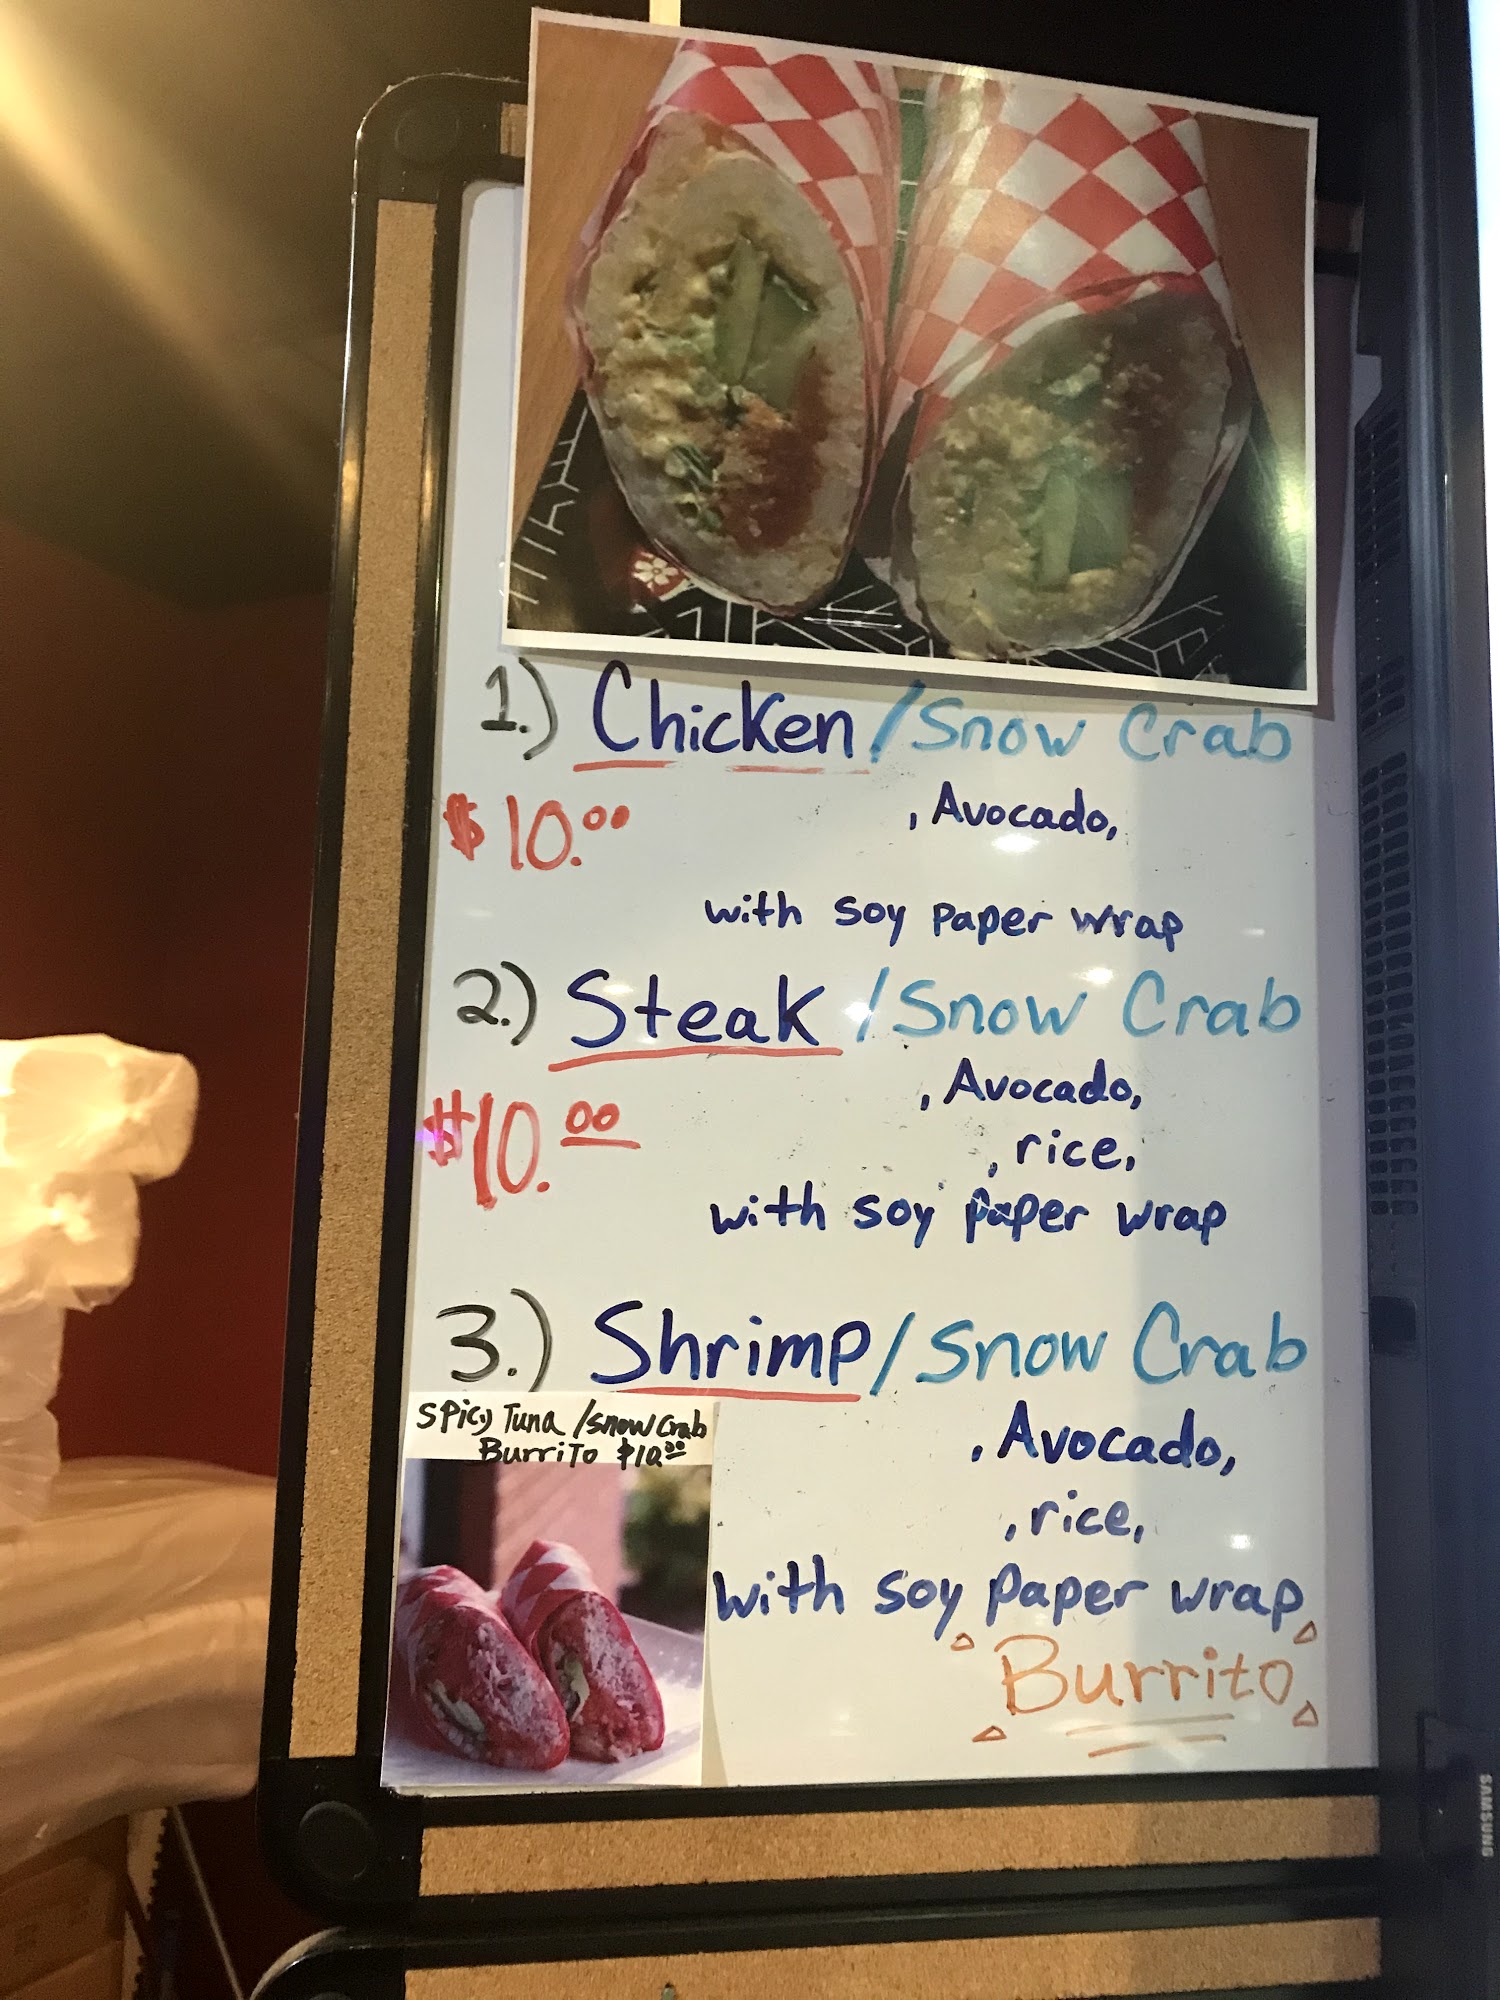 1.) Chicken / Snow Crab
$10.00
, Avocado,
with soy paper wrap
2.) Steak / Snow Crab
, Avocado,
$10.00
, rice,
with soy paper wrap
3.) Shrimp / Snow Crab
Spicy Tuna / snow crab
Burrito $10.00
, Avocado,
, rice,
with soy paper wrap
Burrito
SAMSUNG